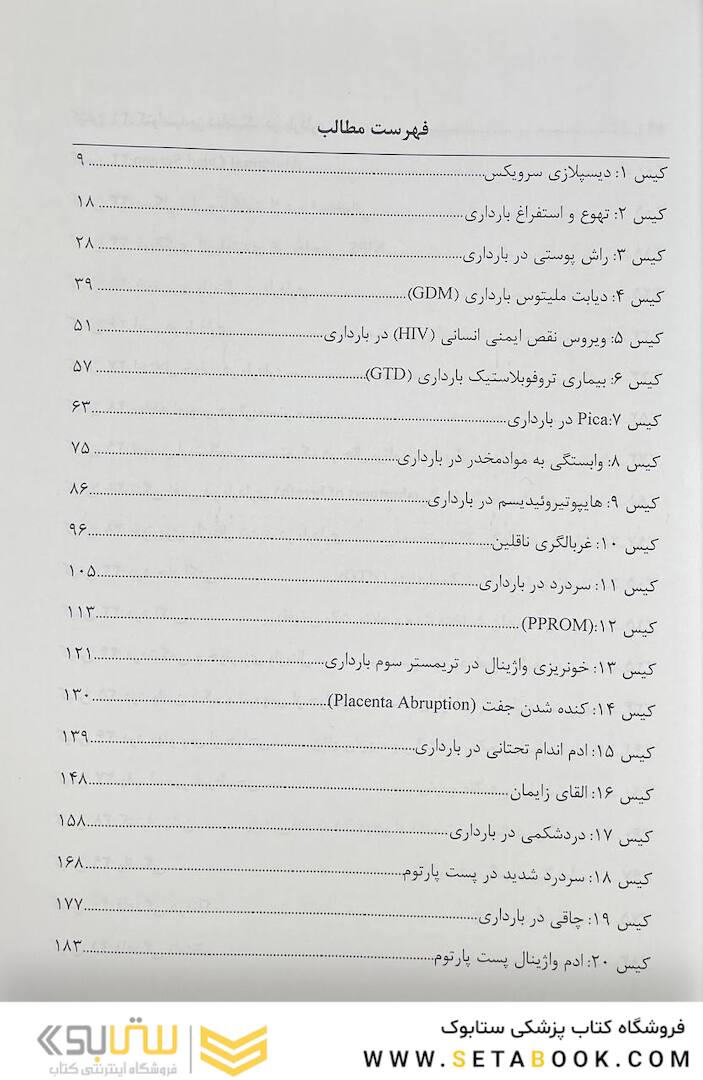 فهرست مطالب
کیس ۱: دیسپلازی سرویکس ۹
کیس ۲: تهوع و استفراغ بارداری ۱۸
کیس ۳: راش پوستی در بارداری ۲۸
کیس ۴: دیابت ملیتوس بارداری (GDM) ۳۹
کیس ۵: ویروس نقص ایمنی انسانی (HIV) در بارداری ۵۱
کیس ۶: بیماری تروفوبلاستیک بارداری (GTD) ۵۷
کیس ۷:Pica در بارداری ۶۳
کیس ۸: وابستگی به موادمخدر در بارداری ۷۵
کیس ۹: هایپوتیروئیدیسم در بارداری ۸۶
کیس ۱۰: غربالگری ناقلین ۹۶
کیس ۱۱: سردرد در بارداری ۱۰۵
کیس ۱۲:(PPROM) ۱۱۳
کیس ۱۳: خونریزی واژینال در تریمستر سوم بارداری ۱۲۱
کیس ۱۴: کنده شدن جفت (Placenta Abruption) ۱۳۰
کیس ۱۵: ادم اندام تحتانی در بارداری ۱۳۹
کیس ۱۶: القای زایمان ۱۴۸
کیس ۱۷: دردشکمی در بارداری ۱۵۸
کیس ۱۸: سردرد شدید در پست پارتوم ۱۶۸
کیس ۱۹: چاقی در بارداری ۱۷۷
کیس ۲۰: ادم واژینال پست پارتوم ۱۸۳
فروشگاه کتاب پزشکی ستابوک
WWW.SETABOOK.COM
ستابوک
فروشگاه اینترنتی کتاب